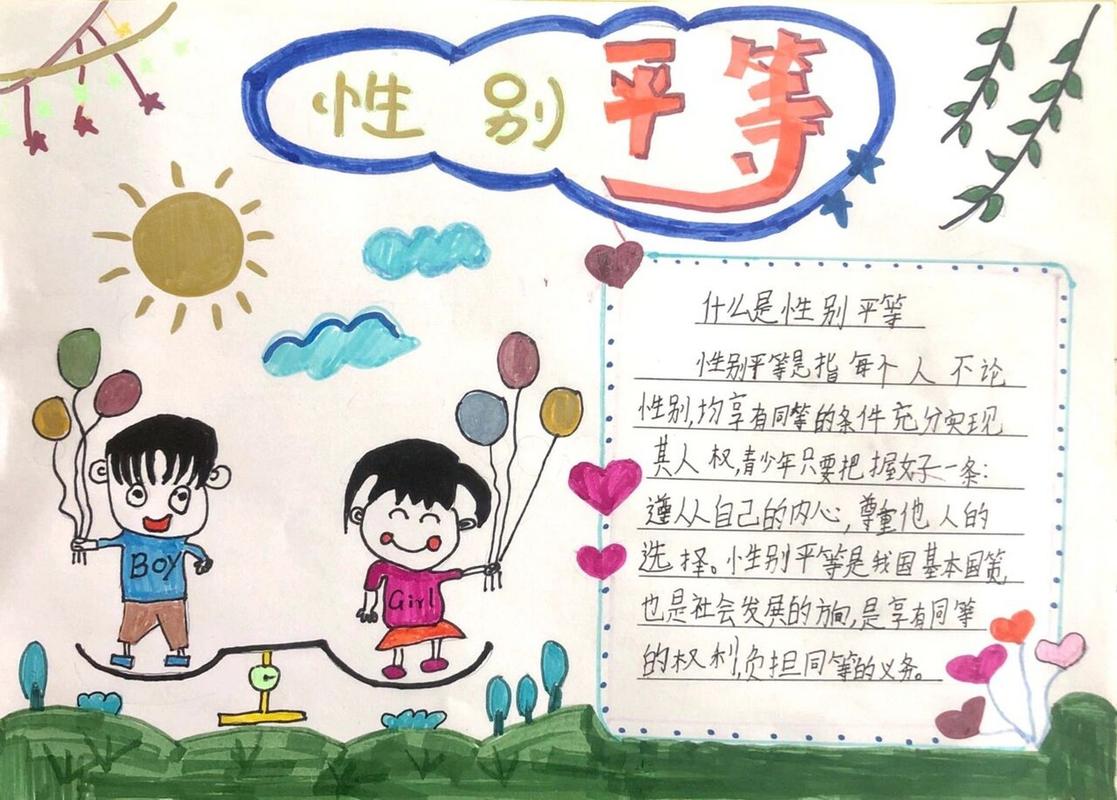 性别平等
什么是性别平等
性别平等是指每个人不论
性别,均享有同等的条件充分实现
其人权,青少年只要把握好一条:
遵从自己的内心,尊重他人的
选择。性别平等是我国基本国策,
也是社会发展的方向,是享有同等
的权利,负担同等的义务。
Boy
Girl